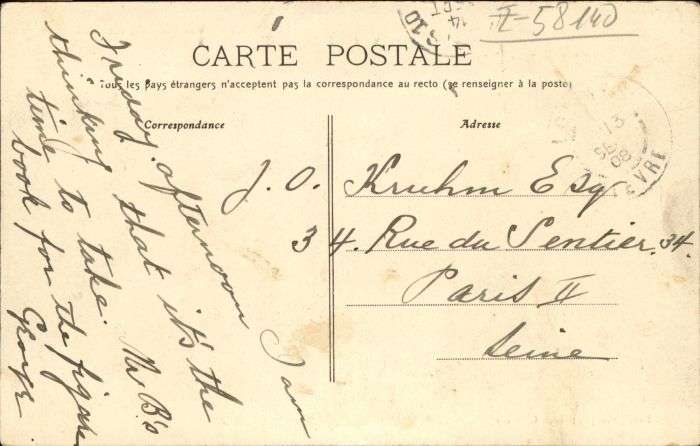 I-58140
CARTE POSTALE
Tous les pays étrangers n'acceptent pas la correspondance au recto (se renseigner à la poste)
Correspondance
Friday afternoon I am
thinking that it's the
time to take Mr B's
book for the figure
George
Adresse
J. O. Kruhm Esq
34. Rue du Sentier. 34.
Paris II
Seine
14
13
08